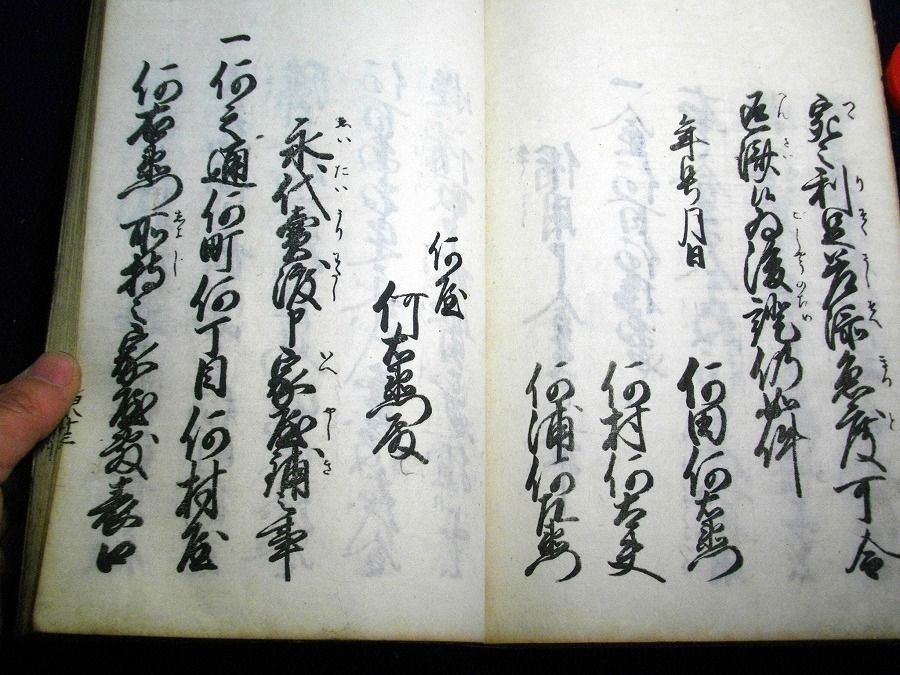 定之利足差添急度可令
返済候為後證仍如件
年号月日
何田何右衛門
何村何太夫
何浦何左衛門
何屋
何右衛門殿
永代賣渡申家屋鋪之事
一何之通何町何丁目何村屋
何右衛門所持之家屋敷表口